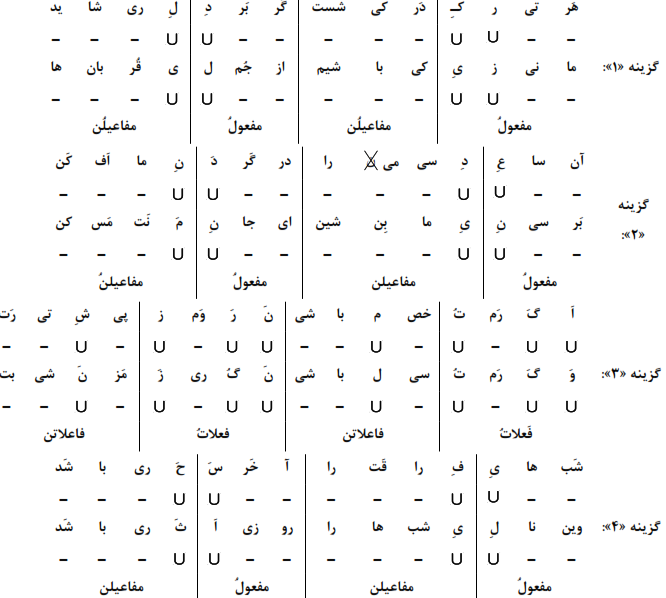 هَر تی ر کِـ دَر کی شست گر بَر دِ لِ ری شا ید
– – U U – – – – – U U – – –
گزینه «۱»: ما نی ز یِ کی با شیم از جُم لِ ی قُر بان ها
– – U U – – – – – U U – – –
مفعولُ مفاعیلُن مفعولُ مفاعیلُن
آن سا عِ دِ سی می ن را در گَر دَ نِ ما اَف کَن
– – U U – – – – – U U – – –
گزینه «۲»: بَر سی نِ یِ ما بِن شین ای جا نِ مَ نَت مَس کن
– – U U – – – – – U U – – –
مفعولُ مفاعیلن مفعولُ مفاعیلنُ
اَ گَ رَم تُ خص م با شی نَ رَ وَم ز پی شِ تی رَت
U U – U – U – – U U – U – U – –
گزینه «۳»: وَ گَ رَم تُ سی ل با شی نَ گُ ری زَ مَز نَ شی بت
U U – U – U – – U U – U – U – –
فَعلاتُ فاعلاتن فعلاتُ فاعلاتن
شَب ها یِ فِ را قَت را آ خَر سَ حَ ری با شَد
– – U U – – – – – U U – – –
گزینه «۴»: وین نا لِ یِ شب ها را رو زی اَ ثَ ری با شَد
– – U U – – – – – U U – – –
مفعولُ مفاعیلن مفعولُ مفاعیلن